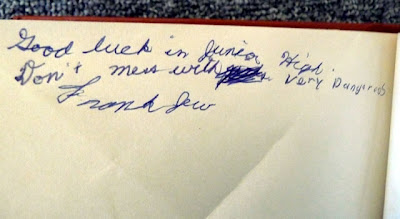 Good luck in Junior High.
Don't mess with Very Dangerous
Frank Jew